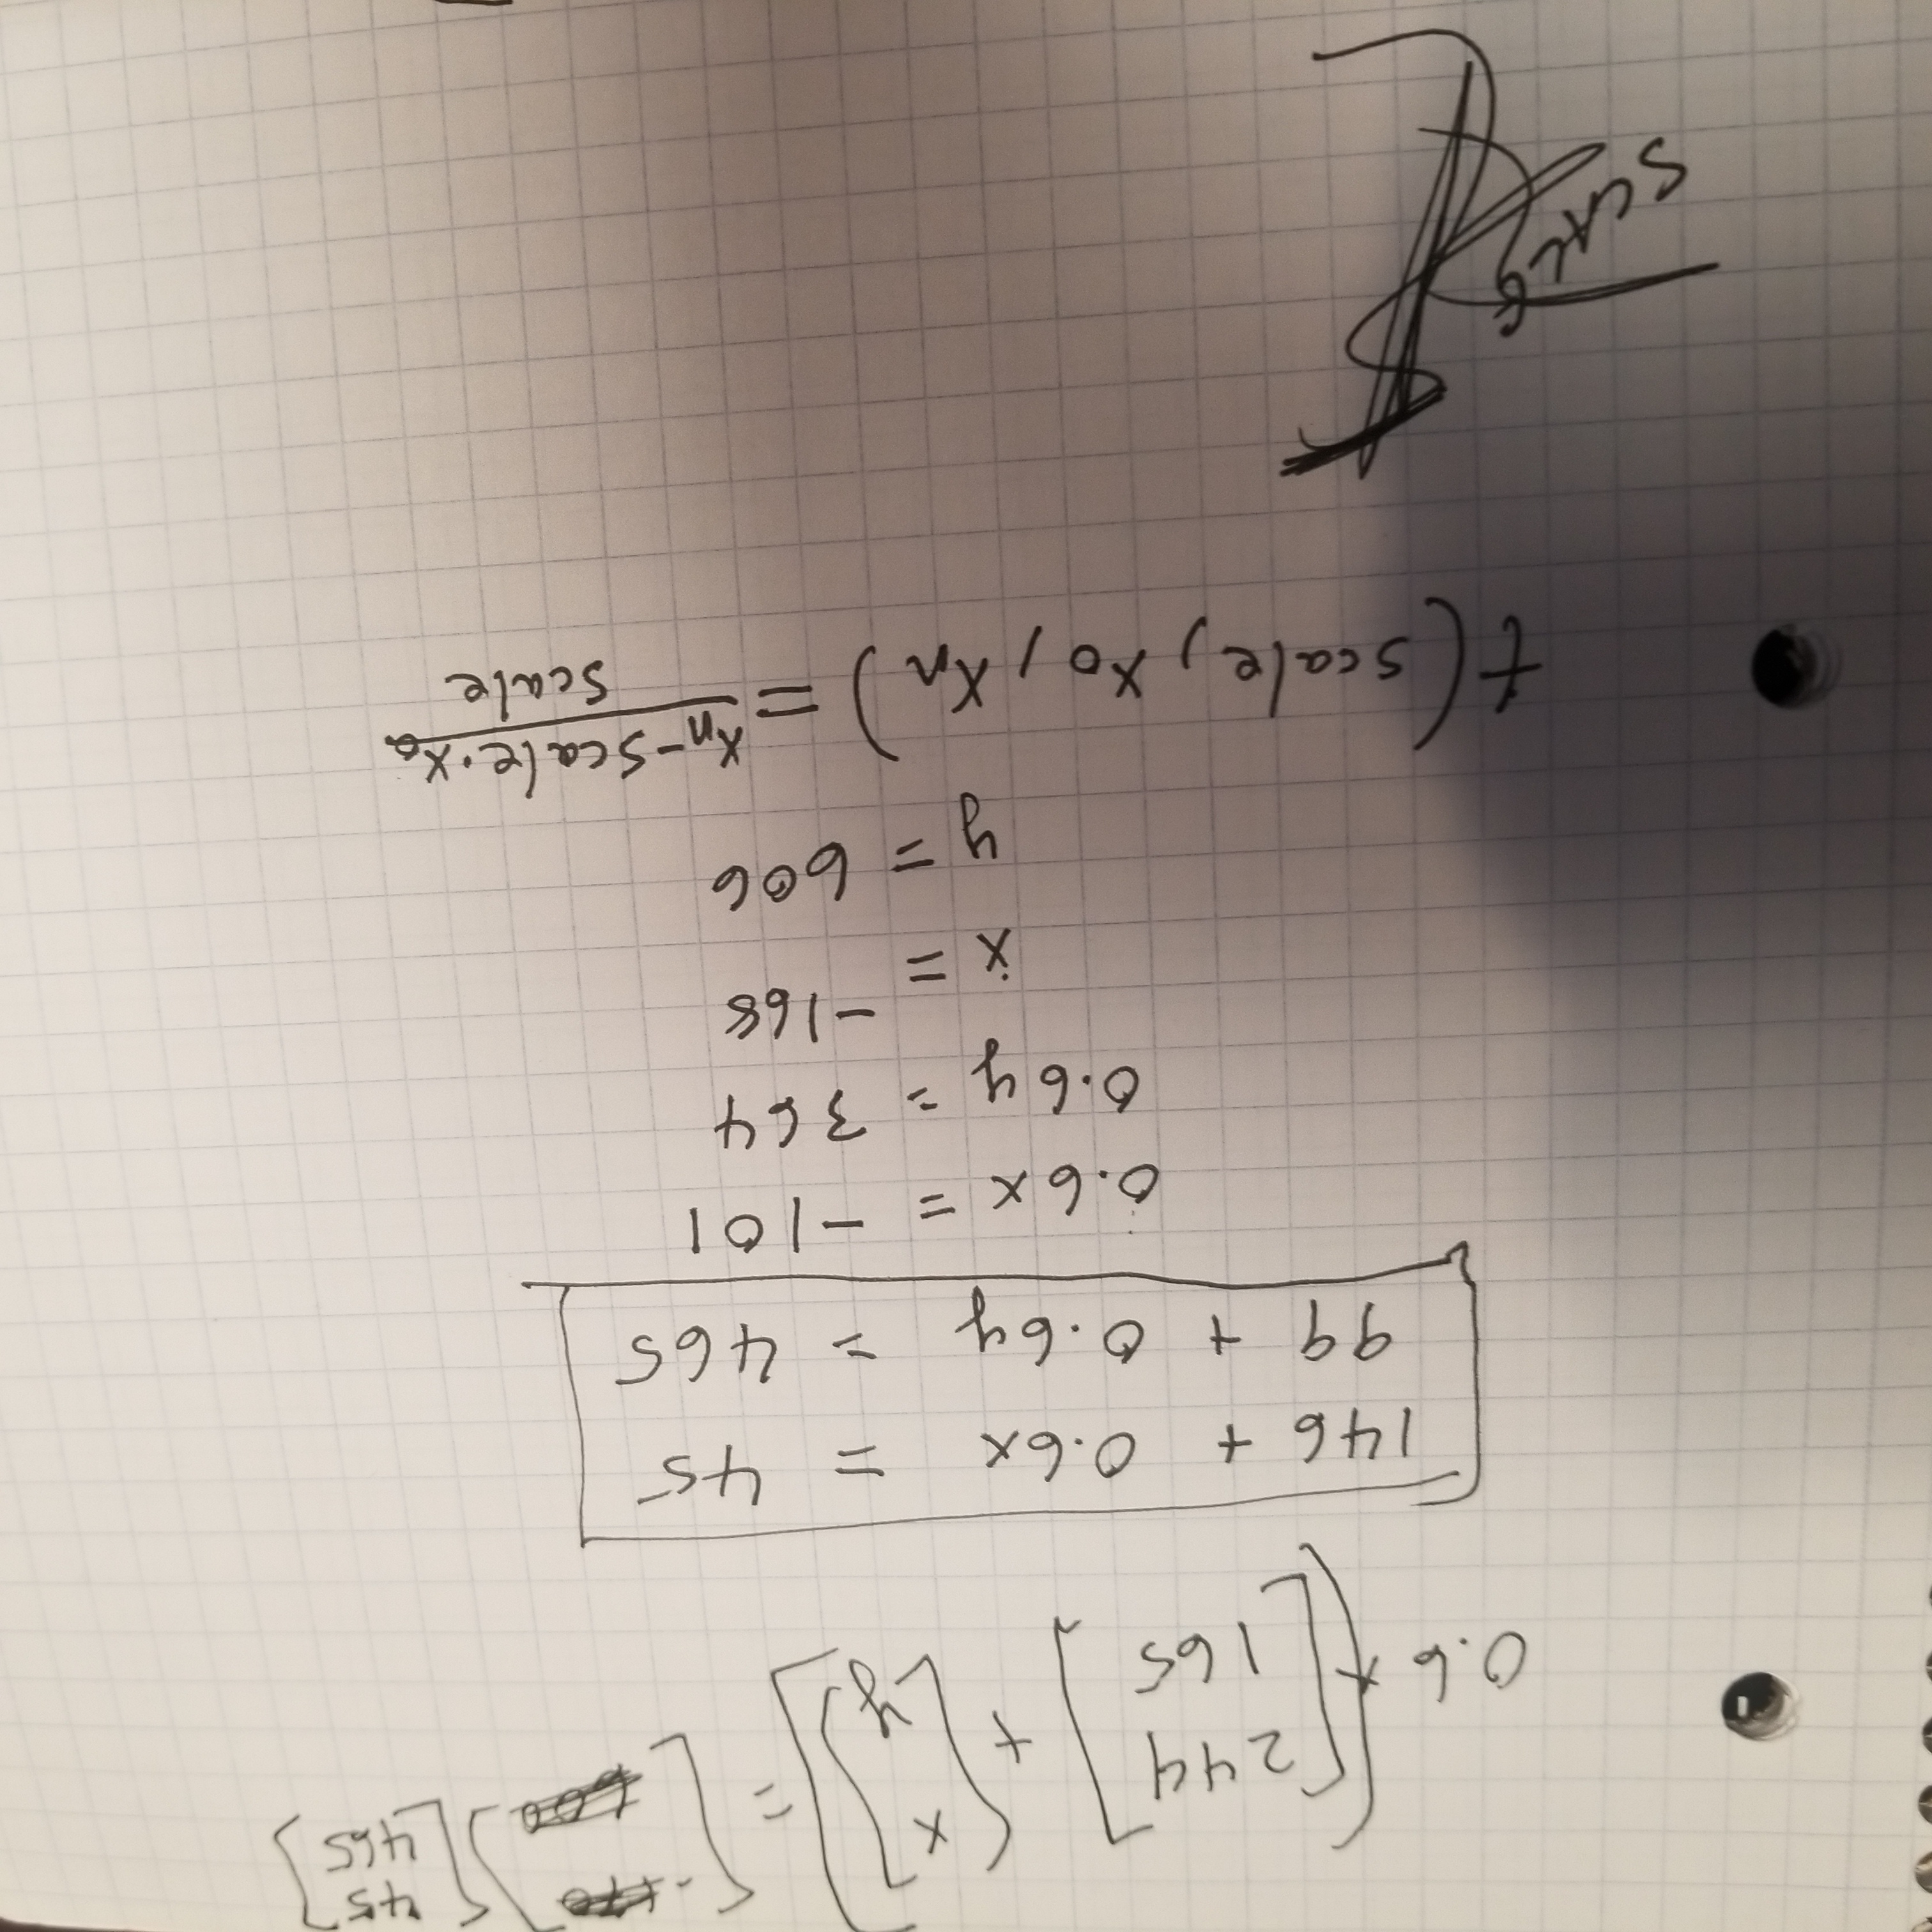 0.6 × ([244 165] + [x y]) = [ ] [45 465]
146 + 0.6x = 45
99 + 0.6y = 465
0.6x = -101
0.6y = 364
x = -168
y = 606
t(scale, x₀, xₙ) = (xₙ - scale · x₀) / scale
SCALE